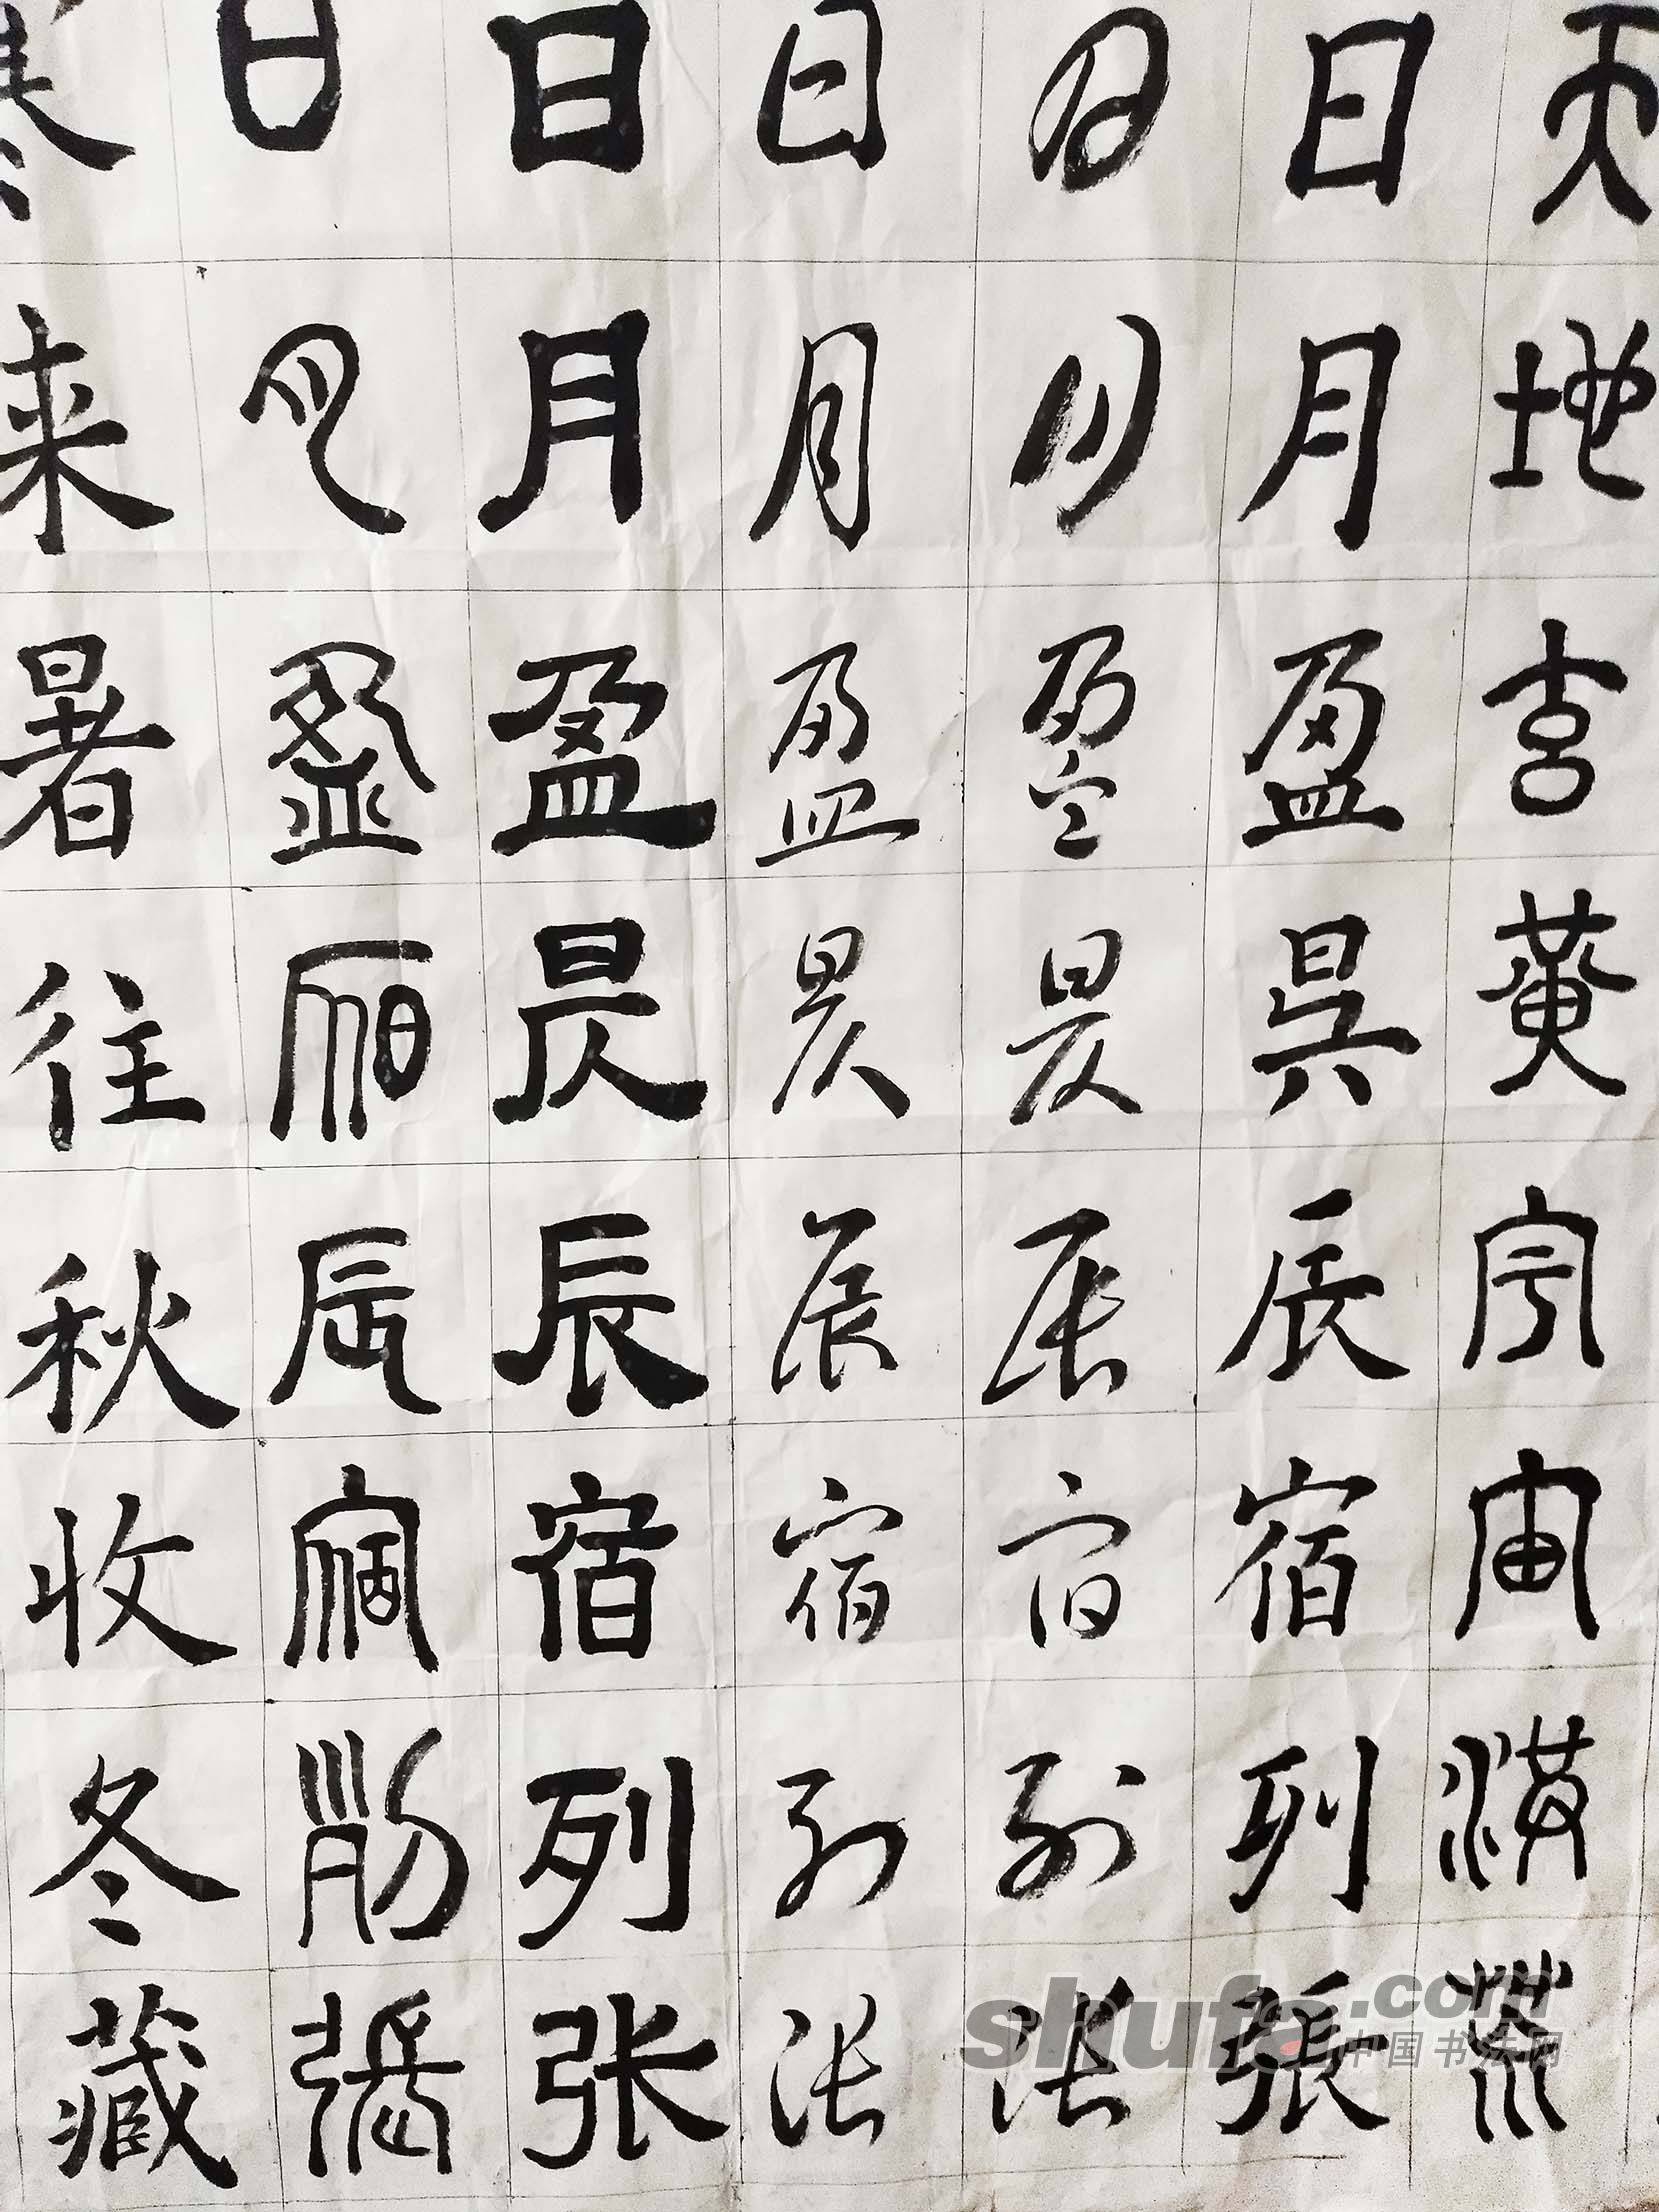 天地玄黄宇宙洪荒
日月盈昃辰宿列張
日月盈昃辰宿列张
日月盈昃辰宿列张
日月盈昃辰宿列张
日月盈昃辰宿列張
寒来暑往秋收冬藏
shufa.com
中国书法网